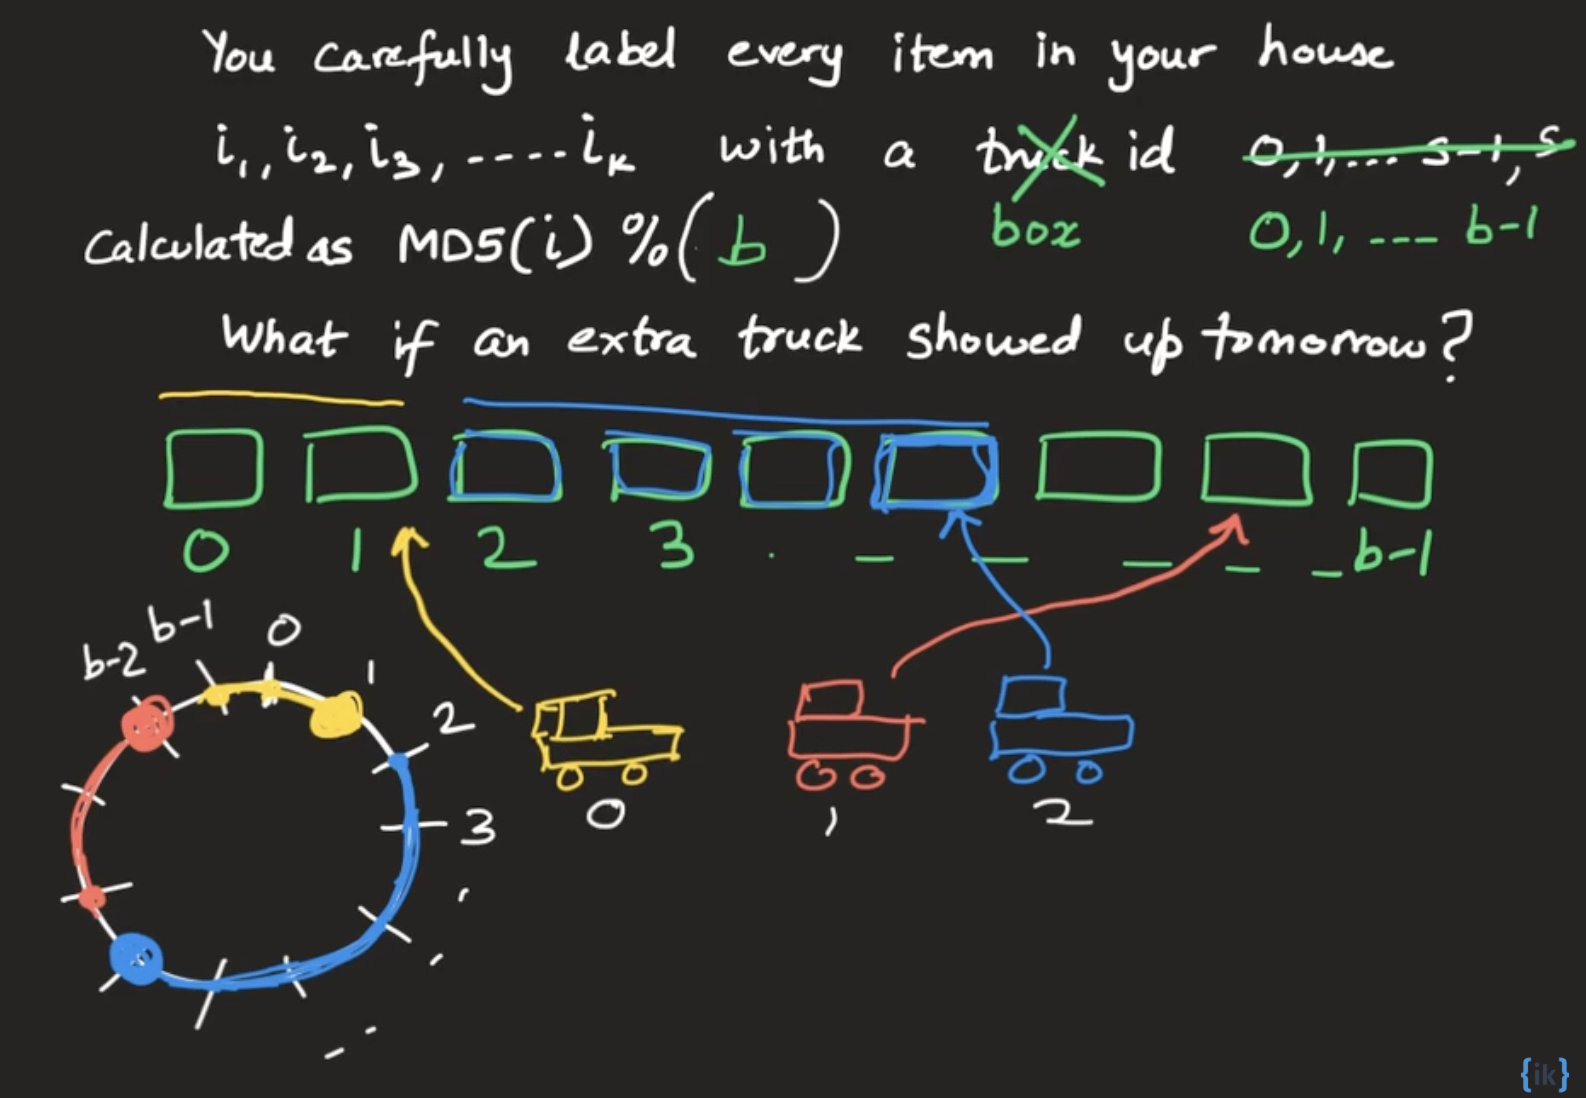 You carefully label every item in your house
i₁, i₂, i₃, ----- iₖ with a truck id 0, 1, ... s-1, s
box 0, 1, --- b-1
Calculated as MD5(i) % ( b )
What if an extra truck showed up tomorrow?
0 1 2 3 . _ _ _ _ _ b-1
b-2 b-1 0 1 2 3
0 1 2
{ik}